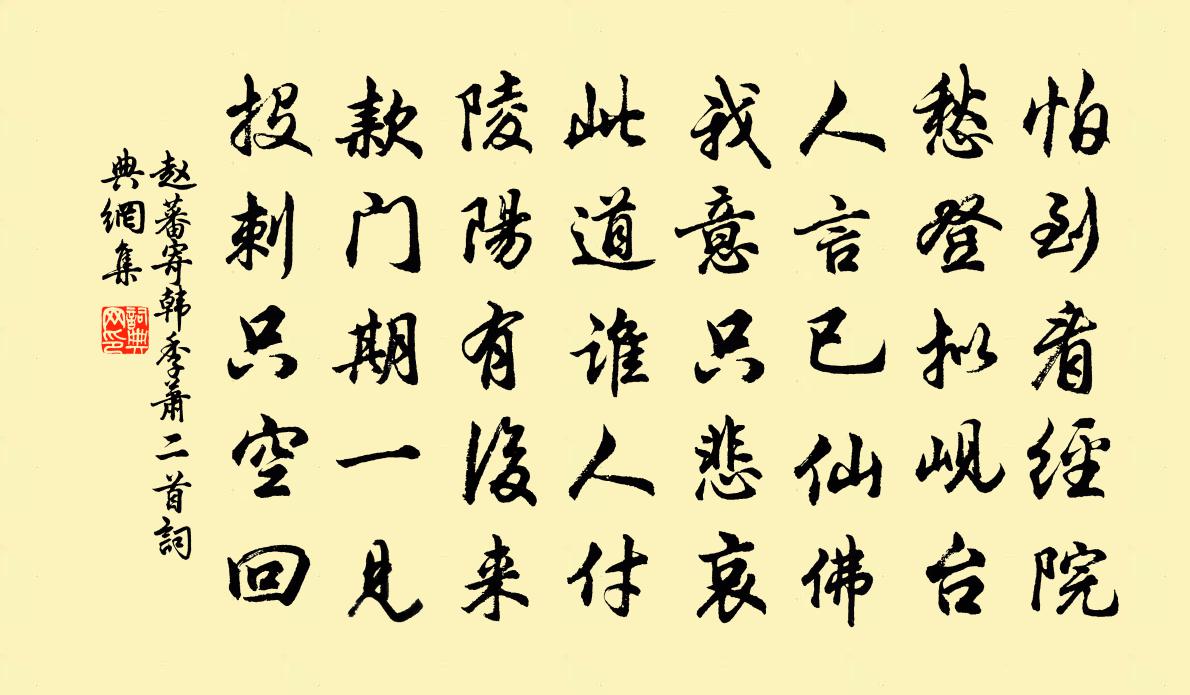 怕到看經院
愁登拟岘台
人言已仙佛
我意只悲哀
此道谁人付
陵陽有後来
款门期一見
投刺只空回
赵蕃寄韩季萧二首詞
典網集
詞典网印